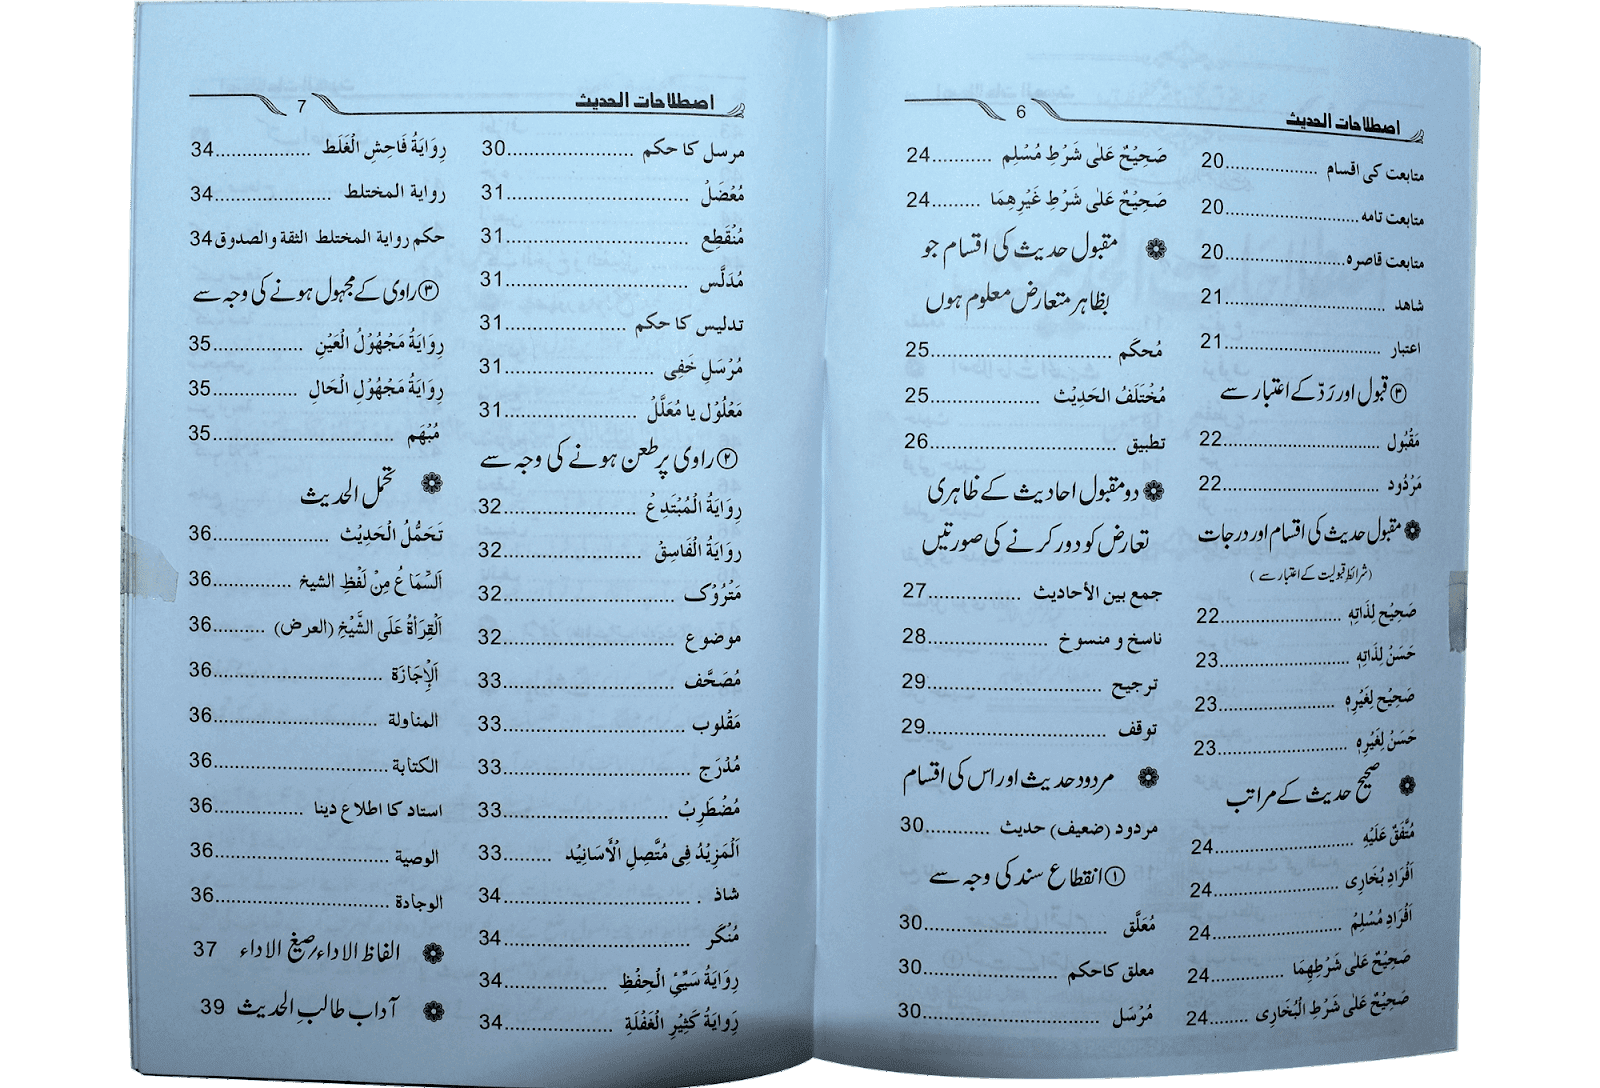 اصطلاحات الحدیث 6
متابعت کی اقسام ..................20
متابعت تامہ..................20
متابعت قاصرہ..................20
شاهد ..................21
اعتبار ..................21
③ قبول اور رَدّ کے اعتبار سے
مَقْبُول ..................22
مَرْدُود..................22
مقبول حدیث کی اقسام اور درجات
(شرائط قبولیت کے اعتبار سے)
صَحِیْح لِذَاتِهٖ ..................22
حَسَنْ لِذَاتِهٖ ..................23
صَحِیْح لِغَیْرِهٖ ..................23
حَسَنْ لِغَیْرِهٖ ..................23
صحیح حدیث کے مراتب
مُتَّفَقْ عَلَیْهِ ..................24
اَفْرَادِ بُخَارِی ..................24
اَفْرَادِ مُسْلِمْ ..................24
صَحِیْحٌ عَلٰی شَرْطِهِمَا ............24
صَحِیْحٌ عَلٰی شَرْطِ الْبُخَارِی ........24
صَحِیْحٌ عَلٰی شَرْطِ مُسْلِم .........24
صَحِیْحٌ عَلٰی شَرْطِ غَیْرِهِمَا .........24
مقبول حدیث کی اقسام جو
بظاہر متعارض معلوم ہوں
مُحکَم ..................25
مُخْتَلَفُ الحَدِیْث ..................25
تطبیق ..................26
دو مقبول احادیث کے ظاہری
تعارض کو دور کرنے کی صورتیں
جمع بین الأحادیث ..................27
ناسخ و منسوخ ..................28
ترجیح ..................29
توقف ..................29
مردود حدیث اور اس کی اقسام
مردود (ضعیف) حدیث ............30
① انقطاع سند کی وجہ سے
مُعَلَّق ..................30
معلق کاحکم ..................30
مُرْسَل ..................30
اصطلاحات الحدیث 7
مرسل کا حکم ..................30
مُعْضَلْ ..................31
مُنْقَطِع ..................31
مُدَلَّس ..................31
تدلیس کا حکم ..................31
مُرْسَلِ خَفِی ..................31
مَعْلُوْل یا مُعَلَّلْ ..................31
② راوی پر طعن ہونے کی وجہ سے
رِوَایَةُ الْمُبْتَدِعْ ..................32
رِوَایَةُ الْفَاسِقْ ..................32
مَتْرُوْک ..................32
موضوع ..................32
مُصَحَّف ..................33
مَقْلُوب ..................33
مُدْرَج ..................33
مُضْطَرِبْ ..................33
اَلْمَزِیْدُ فِی مُتَّصِلِ الْأَسَانِیْد .........33
شاذ ..................34
مُنْکَر ..................34
رِوَایَةُ سَیِّیِٔ الْحِفْظِ ..................34
رِوَایَةُ کَثِیْرِ الْغَفْلَةِ ..................34
رِوَایَةُ فَاحِشِ الْغَلَط ..................34
روایة المختلط ..................34
حکم روایة المختلط الثقة والصدوق 34
③ راوی کے مجہول ہونے کی وجہ سے
رِوَایَةُ مَجْهُوْلُ الْعَیْنِ ..................35
رِوَایَةُ مَجْهُوْلِ الْحَالِ ..................35
مُبْهَم ..................35
تحمل الحدیث
تَحَمُّلُ الْحَدِیْث ..................36
اَلسِّمَاعُ مِنْ لَفْظِ الشیخ ............36
اَلْقِرَأةُ عَلَی الشَّیْخِ (العرض) .........36
اَلْإِجَازَة ..................36
المناولة ..................36
الکتابة ..................36
استاد کا اطلاع دینا ..................36
الوصیة ..................36
الوجادة ..................36
الفاظ الاداء/صیغ الاداء 37
آداب طالبِ الحدیث 39